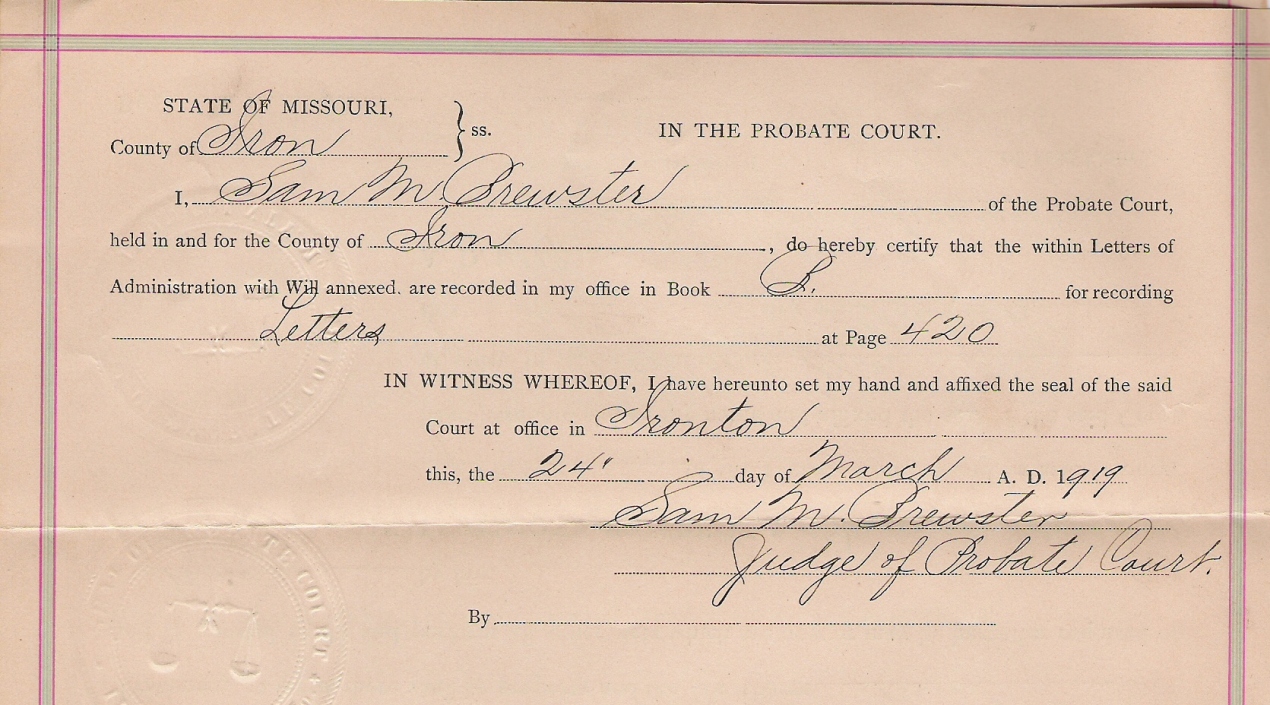 STATE OF MISSOURI,
County of Iron } ss.
IN THE PROBATE COURT.
I, Sam M. Brewster of the Probate Court,
held in and for the County of Iron, do hereby certify that the within Letters of
Administration with Will annexed. are recorded in my office in Book B. for recording
Letters at Page 420
IN WITNESS WHEREOF, I have hereunto set my hand and affixed the seal of the said
Court at office in Ironton
this, the 24" day of March A. D. 1919
Sam M. Brewster
Judge of Probate Court.
By